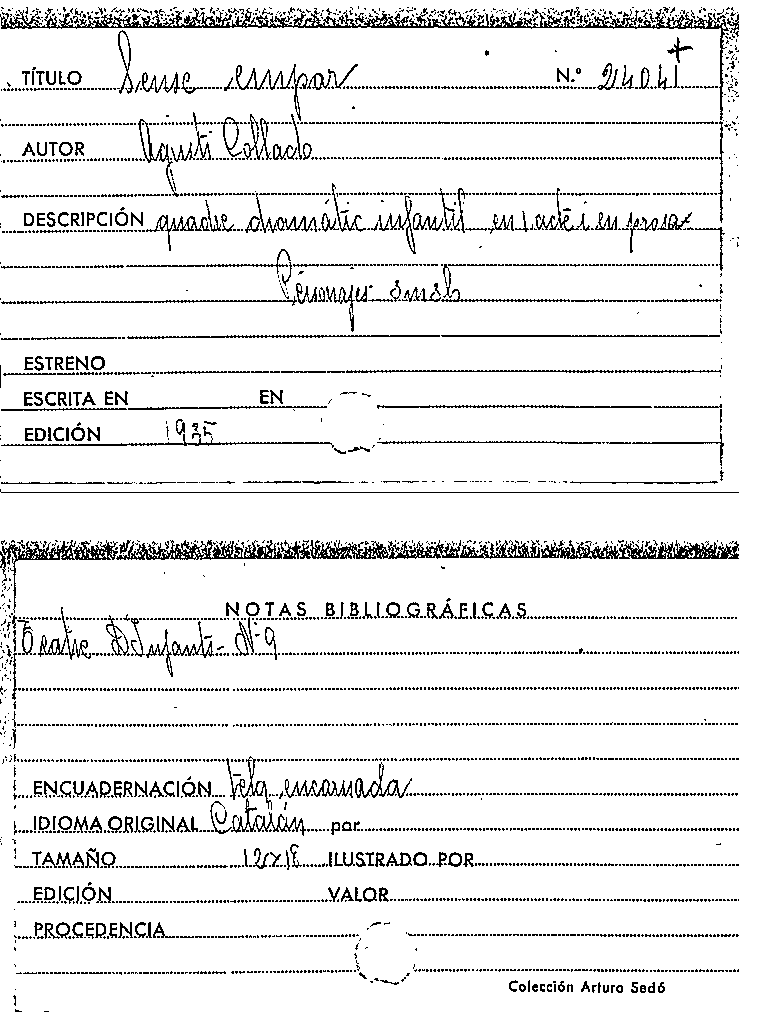 TÍTULO Sense empar N.º 24041
AUTOR Agustí Collado
DESCRIPCIÓN quadre dramátic infantil en 1 acte i en prosa
Personajes
ESTRENO
ESCRITA EN EN
EDICIÓN 1935
NOTAS BIBLIOGRÁFICAS
Teatre D'Infants - Nº 9
ENCUADERNACIÓN tela encarnada
IDIOMA ORIGINAL Catalán por
TAMAÑO 12x18 ILUSTRADO POR
EDICIÓN VALOR
PROCEDENCIA
Colección Arturo Sedó